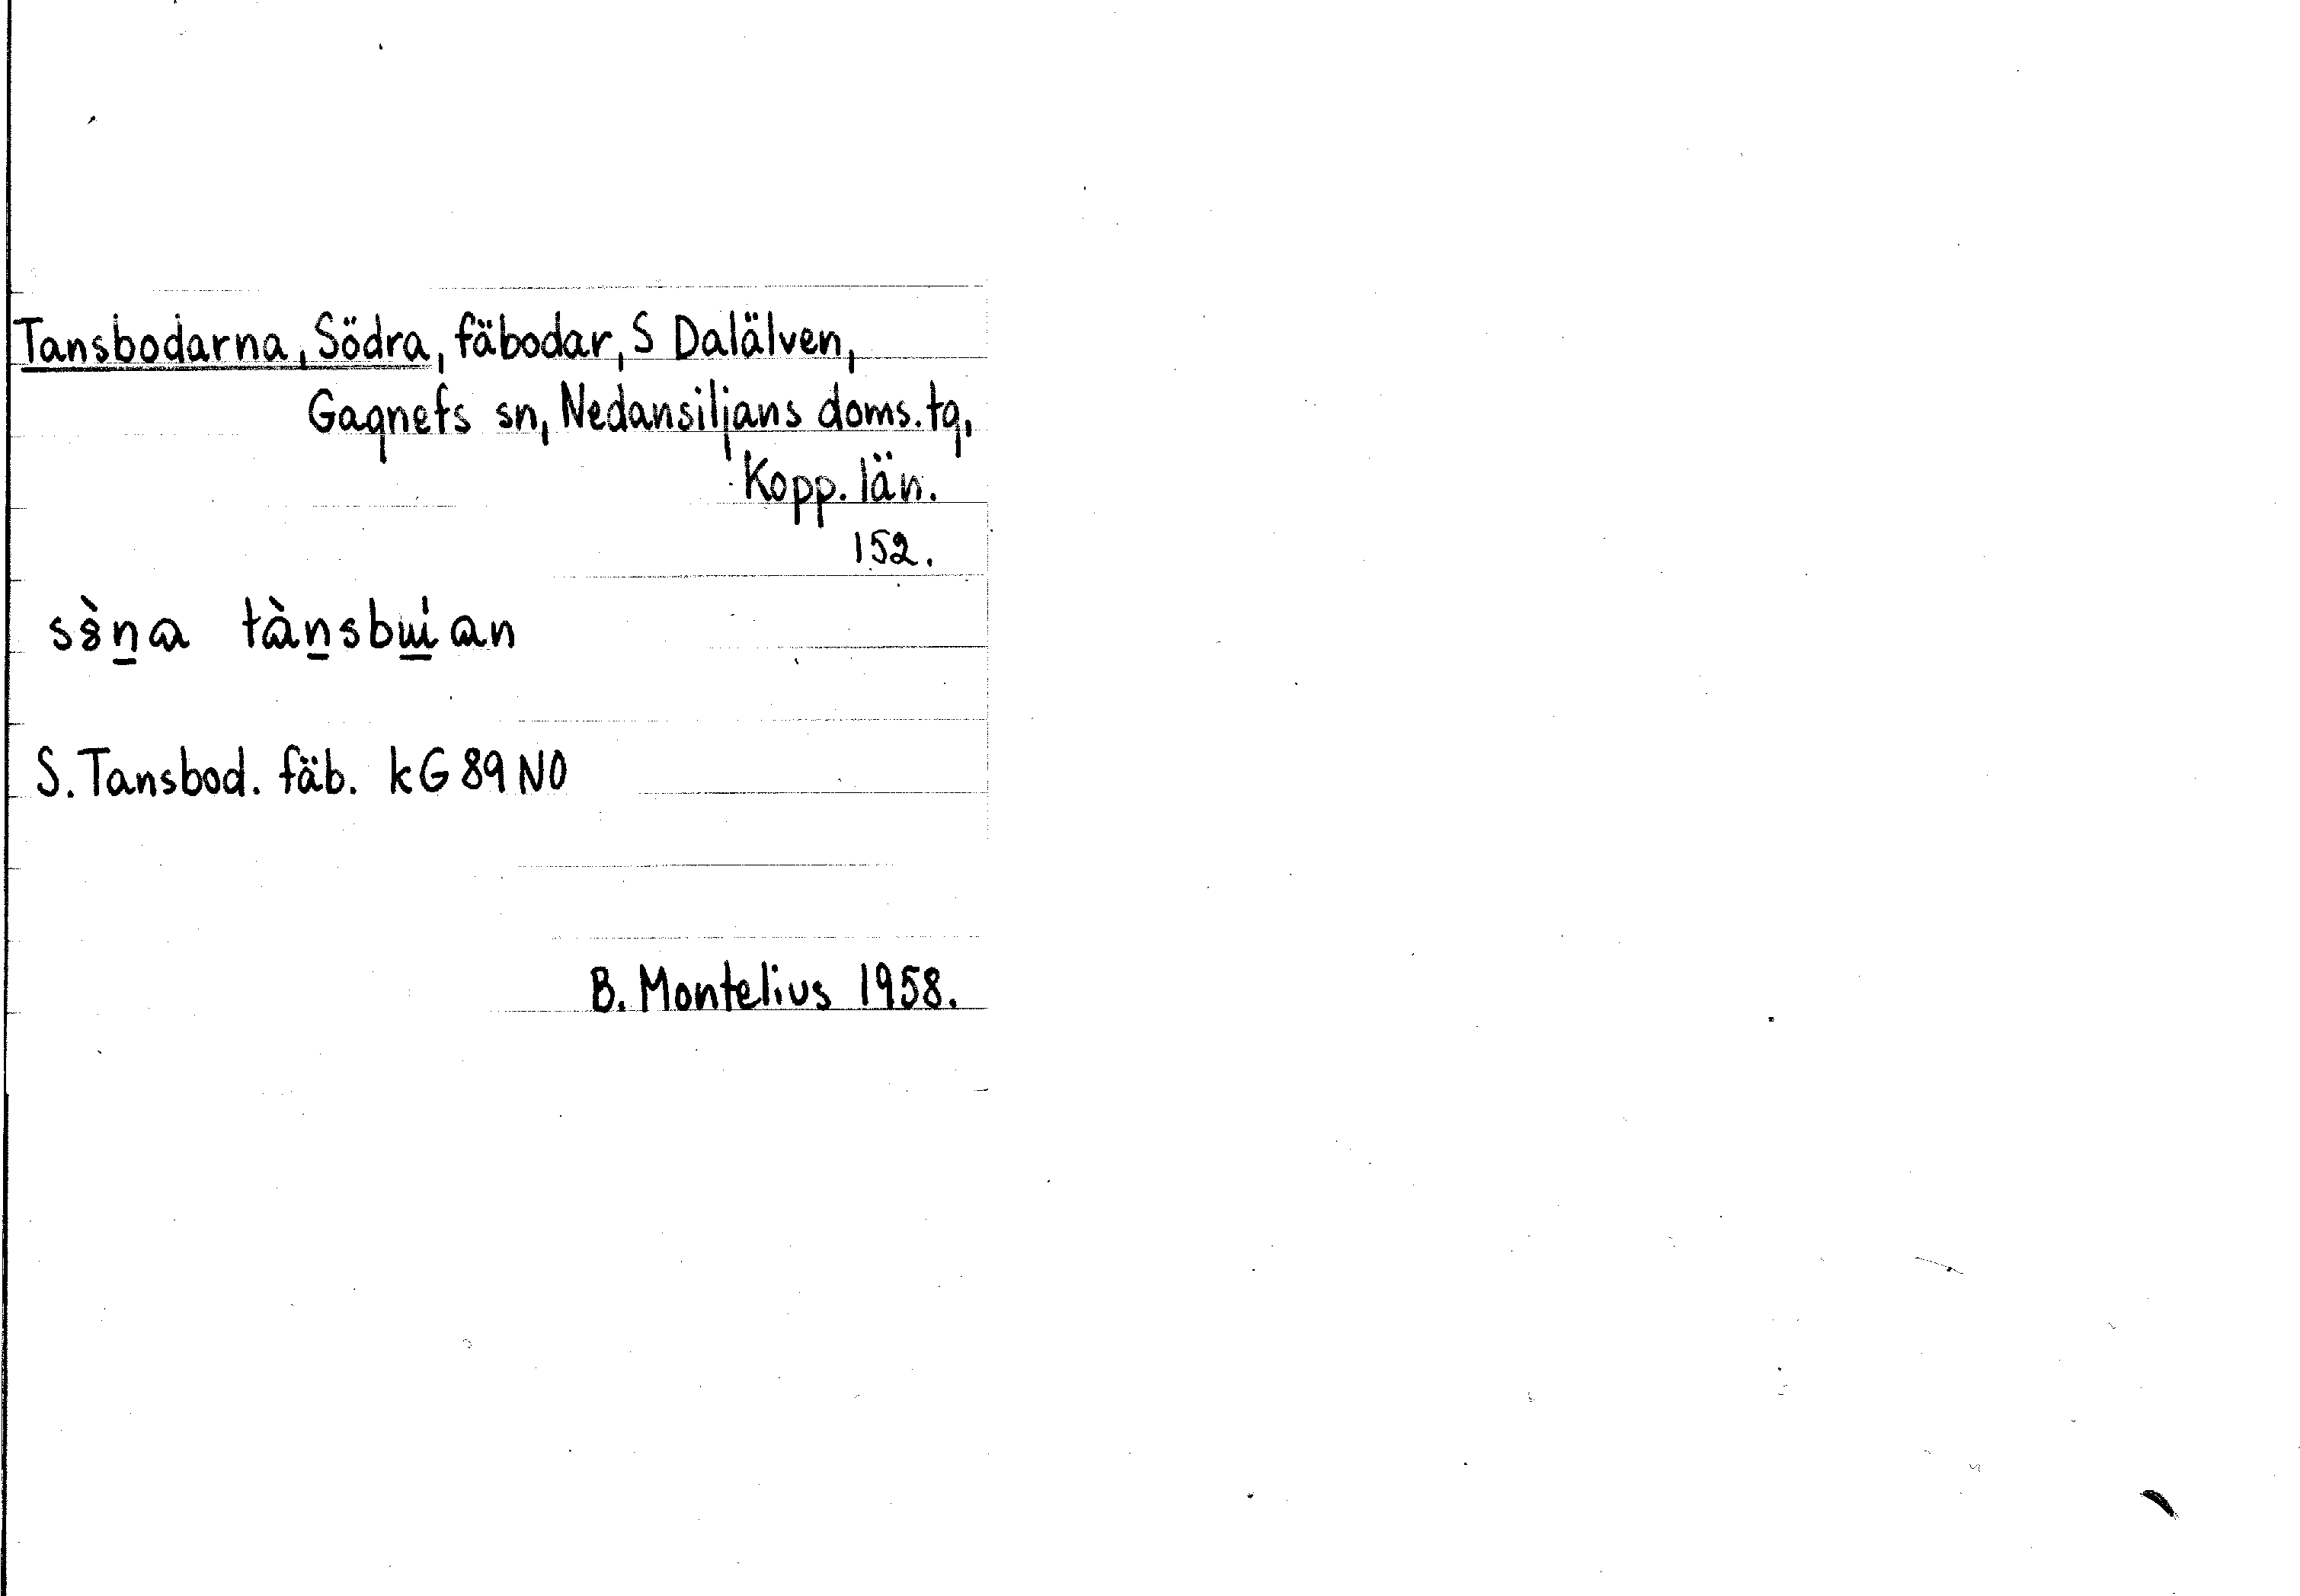 Tansbodarna, Södra, fäbodar, S Dalälven,
Gagnefs sn, Nedansiljans doms. tg,
Kopp. län.
152.
S. Tansbod. fäb. kG 89 NO
B. Montelius 1958.